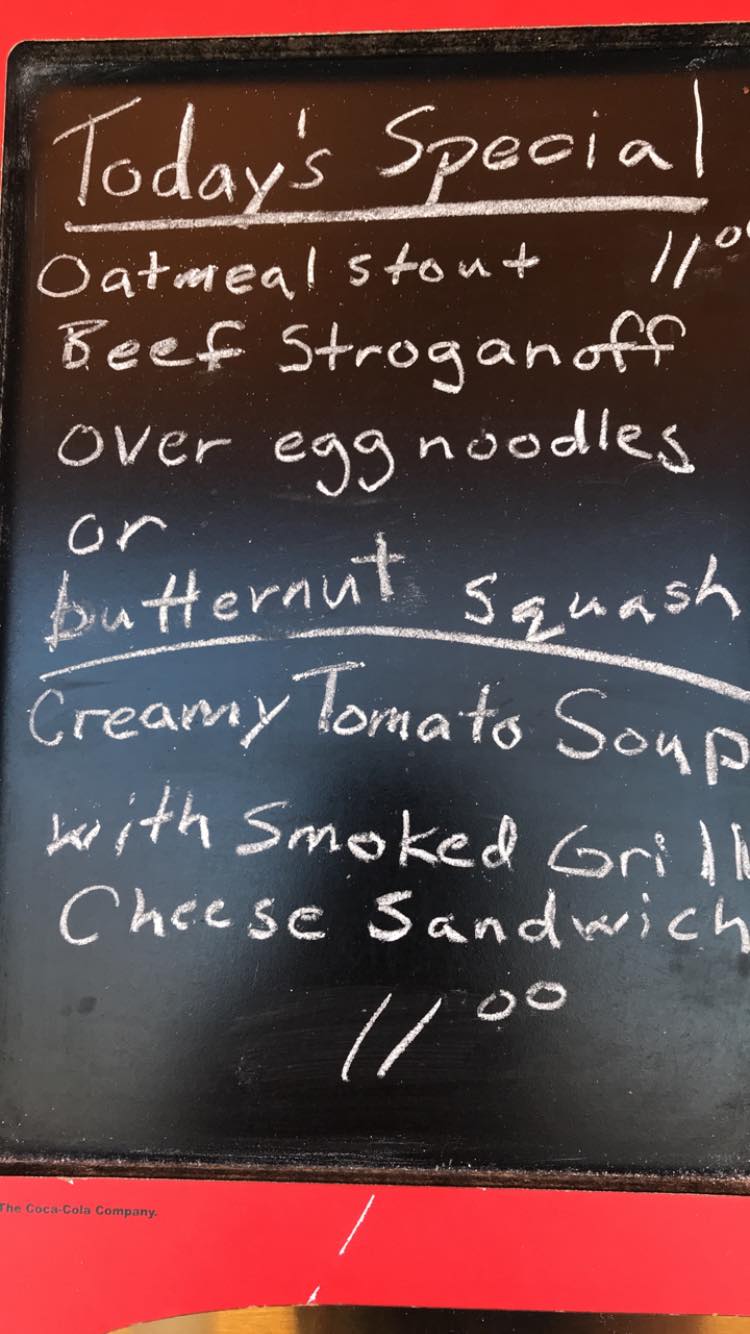 Today's Special
Oatmeal stout 11 00
Beef Stroganoff
over egg noodles
or
butternut squash
Creamy Tomato Soup
with Smoked Grill
Cheese Sandwich
11 00
The Coca-Cola Company.